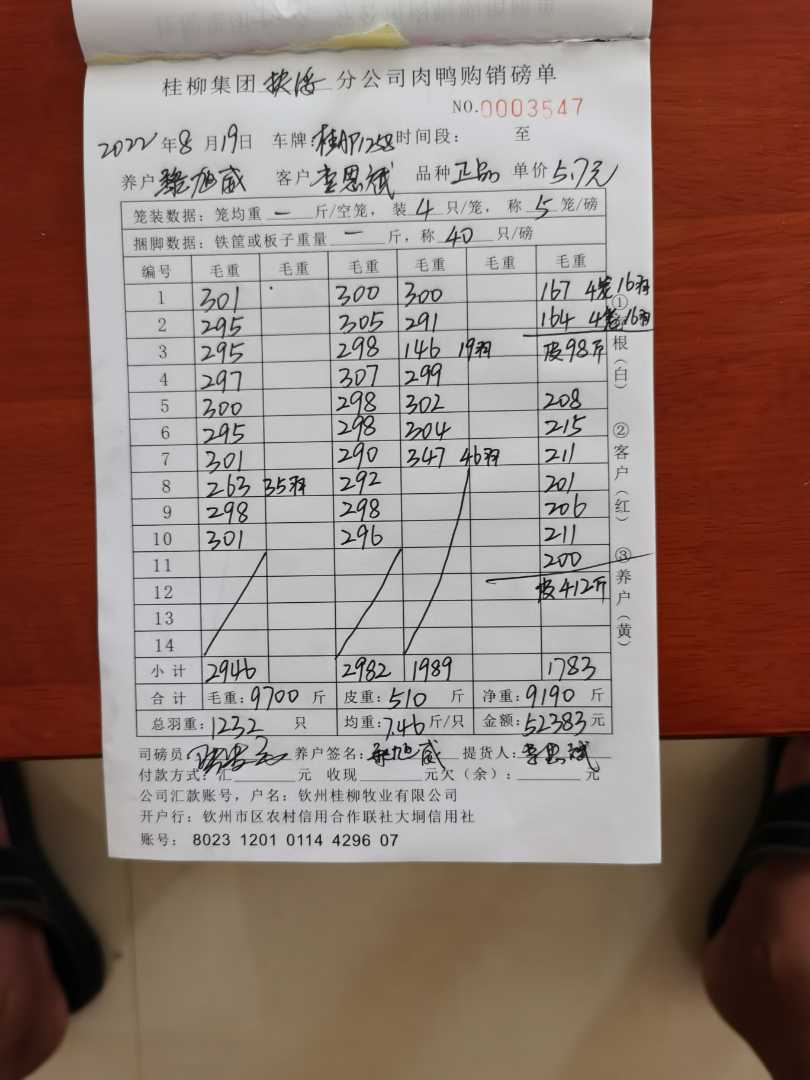 桂柳集团 扶绥 分公司肉鸭购销磅单
NO.0003547
2022年8月19日 车牌:桂AP1258 时间段: 至
养户 旭威 客户 李恩斌 品种 正品 单价 5.7元
笼装数据:笼均重 一 斤/空笼,装 4 只/笼,称 5 笼/磅
捆脚数据:铁筐或板子重量 一 斤,称 40 只/磅
编号 毛重 毛重 毛重 毛重 毛重 毛重
1 301 300 300 167 4笼16羽
2 295 305 291 164 4笼16羽
3 295 298 146 19羽 皮98斤
4 297 307 299
5 300 298 302 208
6 295 298 304 215
7 301 290 347 46羽 211
8 263 35羽 292 201
9 298 298 206
10 301 296 211
11 200
12 皮412斤
13
14
小计 2946 2982 1989 1783
合计 毛重:9700 斤 皮重:510 斤 净重:9190 斤
总羽重:1232 只 均重:7.46 斤/只 金额:52383 元
①根(白) ②客户(红) ③养户(黄)
司磅员: 养户签名: 旭威 提货人:李恩斌
付款方式:汇 元 收现 元欠(余): 元
公司汇款账号,户名:钦州桂柳牧业有限公司
开户行:钦州市区农村信用合作联社大垌信用社
账号: 8023 1201 0114 4296 07